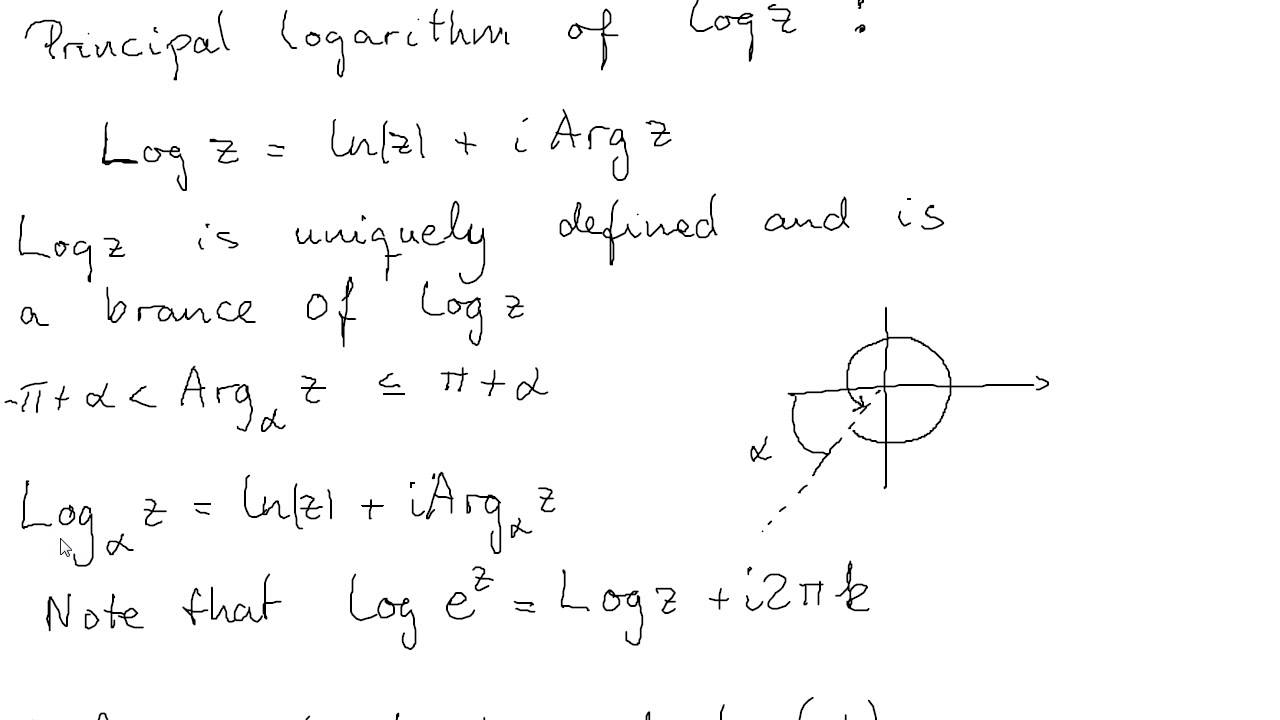 Principal logarithm of log z :
Log z = ln|z| + i Arg z
Log z is uniquely defined and is
a brance of log z
-π + α < Arg_α z ≤ π + α
α
Log_α z = ln|z| + i Arg_α z
Note that log e^z = Log z + i2πk